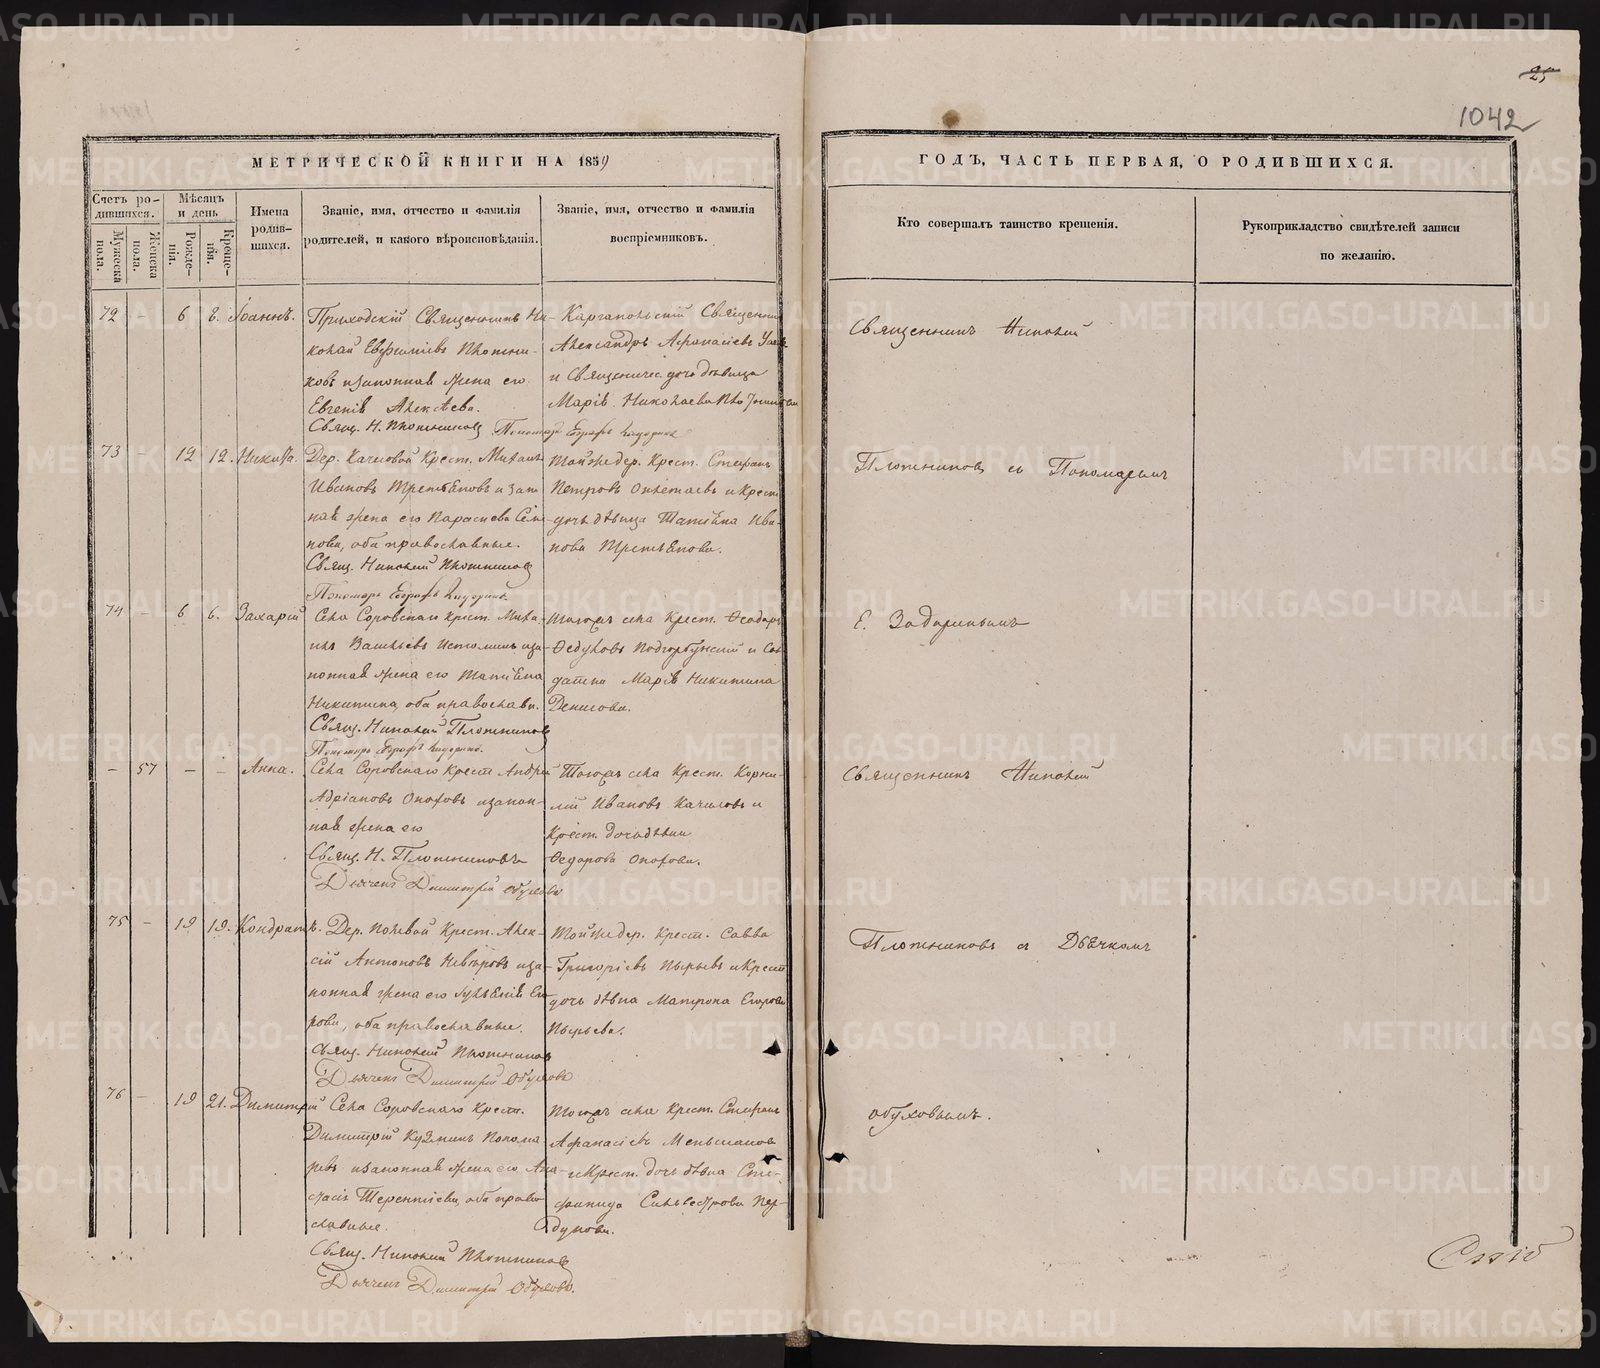 25
1042
МЕТРИЧЕСКОЙ КНИГИ НА 1859
ГОДЪ, ЧАСТЬ ПЕРВАЯ, О РОДИВШИХСЯ.
Счетъ ро-
дившихся.
Мѣсяцъ
и день
Имена
родив-
шихся.
Званіе, имя, отчество и фамилія
родителей, и какого вѣроисповѣданія.
Званіе, имя, отчество и фамилія
воспріемниковъ.
Мужеска
пола.
Женска
пола.
Рожде-
нія.
Креще-
нія.
Кто совершалъ таинство крещенія.
Рукоприкладство свидѣтелей записи
по желанію.
72 - 6 8. Іоаннъ.
Приходскій Священникъ Ни-
колай Евфиміевъ Плотни-
ковъ изаконная жена его
Евгенія Алексѣева.
Свящ. Н. Плотниковъ Пономарь Евграфъ
Каргапольскій Священникъ
Александръ Афанасіевъ
и Священичес. дочь дѣвица
Марія Николаева
Священникъ Николай
73 - 12 12. Никита.
Дер. Качесовой Крест. Михаилъ
Ивановъ Третьяковъ и зако
ная жена его Параскева Семе-
нова, оба православные.
Свящ. Николай Плотниковъ
Пономарь Евграфъ
Тойжедер. Крест. Стефанъ
Петровъ икрест
дочь дѣвица Татіяна Ива-
нова Третьякова.
Плотниковъ съ Пономаремъ
74 - 6 6. Захарій
Села Соровскаго крест. Миха-
илъ Васильевъ Истоминъ иза-
конная жена его Татіяна
Никитина, оба православн.
Свящ. Николай Плотниковъ
Пономарь Евграфъ
Тогожъ села Крест. Ѳеодоръ
Ѳедуловъ Подгорбунскій и Сол
датка Марія Никитина
Денисова.
Е. Задоринымъ
- 57 - - Анна.
Села Соровскаго Крест Андрей
Адріановъ изакон-
ная жена его
Свящ. Н. Плотниковъ
Дьячекъ Димитрій Обуховъ
Тогожъ села Крест. Корни-
лій Ивановъ Качаловъ и
Крест. дочь дѣвки
Ѳедорова
Священникъ Николай
75 - 19 19. Кондратъ.
Дер. Полевой Крест. Алек-
сій Антоновъ Невѣровъ иза-
конная жена его Гульянія Его
рова, оба православные.
Свящ. Николай Плотниковъ
Дьячекъ Димитрій Обуховъ
Тойжедер. Крест. Савва
Григоріевъ Пырьевъ иКрест
дочь дѣвка Матрона Егорова
Пырьева.
Плотниковъ съ Дьячкомъ
76 - 19 21. Димитрій
Села Соровскаго Крест.
Димитрій Кузминъ Понома
ревъ изаконная жена его Ана-
стасія Терентіева, оба право
славные.
Свящ. Николай Плотниковъ
Дьячекъ Димитрій Обуховъ.
Тогожъ села Крест. Стефанъ
Афанасіевъ Меньшиковъ
иКрест. дочь дѣвка Сте-
фанида Сильвестрова
Обуховымъ.
METRIKI.GASO-URAL.RU